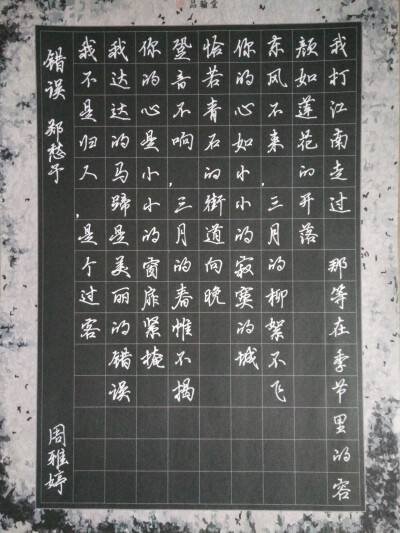 品翰堂
我打江南走过 那等在季节里的容
颜如莲花的开落
东风不来，三月的柳絮不飞
你的心如小小的寂寞的城
恰若青石的街道向晚
跫音不响，三月的春帷不揭
你的心是小小的窗扉紧掩
我达达的马蹄是美丽的错误
我不是归人，是个过客
错误 郑愁予
周雅婷